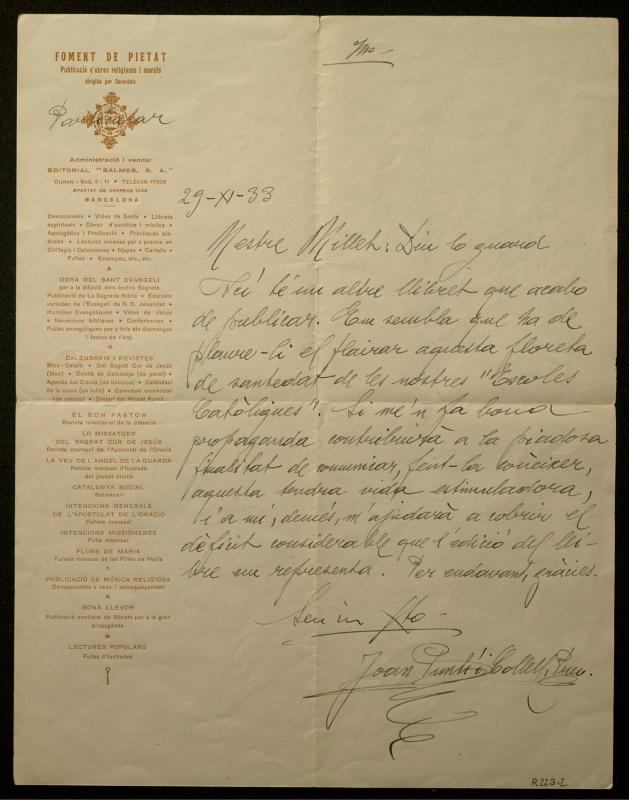 FOMENT DE PIETAT
Publicació d'obres religioses i morals
dirigida per Sacerdots
Particular
Administració i venda:
EDITORIAL "BALMES, S. A."
DURAN I BAS, 9 i 11 • TELÈFON 17005
APARTAT DE CORREUS 1029
BARCELONA
Devocionaris • Vides de Sants • Llibrets
espirituals • Obres d'ascètica i mística •
Apologètica i Predicació • Pràctiques pie-
doses • Lectures amenes per a premis en
Col·legis i Catecismes • Mapes • Cartells •
Fulles • Estampes, etc., etc.
OBRA DEL SANT EVANGELI
per a la difusió dels textos Sagrats
Publicació de La Sagrada Bíblia • Edicions
variades de l'Evangeli de N. S. Jesucrist •
Homilies Evangèliques • Vides de Jesús
• Narracions bíbliques • Conferències •
Fulles evangèliques per a tots els diumenges
i festes de l'any.
CALENDARIS I REVISTES
Bloc-Calaix • Del Sagrat Cor de Jesús
(bloc) • Cristià de Catalunya (de paret) •
Agenda del Cristià (de butxaca) • Calendari
de la cuina (en fulls) • Calendari comercial
(de masses) • Dietari del Missal Romà.
EL BON PASTOR
Revista ministerial de la clerecia
LO MISSATGER
DEL SAGRAT COR DE JESÚS
Revista mensual de l'Apostolat de l'Oració
LA VEU DE L'ANGEL DE LA GUARDA
Revista mensual il·lustrada
del jovent cristià
CATALUNYA SOCIAL
Setmanari
INTENCIONS GENERALS
DE L'APOSTOLAT DE L'ORACIÓ
Fullets mensual
INTENCIONS MISSIONERES
Fulla mensual
FLORS DE MARIA
Fulleta mensual de les Filles de Maria
PUBLICACIÓ DE MÚSICA RELIGIOSA
Composicions a veus i acompanyament
BONA LLEVOR
Publicació contínua de llibrets per a la gran
propaganda
LECTURES POPULARS
Fulles il·lustrades
29-XI-33
Mestre Millet: Déu lo guard
Ací té un altre llibret que acabo
de publicar. Em sembla que ha de
plaure-li el flairar aquesta floreta
de santedat de les nostres "Escoles
Catòliques". Si me'n fa bona
propaganda contribuirà a la piadosa
finalitat de comunicar, fent-la conèixer,
aquesta tendra vida estimuladora,
i a mi, demés, m'ajudarà a cobrir el
dèficit considerable que l'edició del lli-
bre em representa. Per endavant, gràcies.
Seu in Xto
Joan Puntí i Collell, Prev.
R 223,2